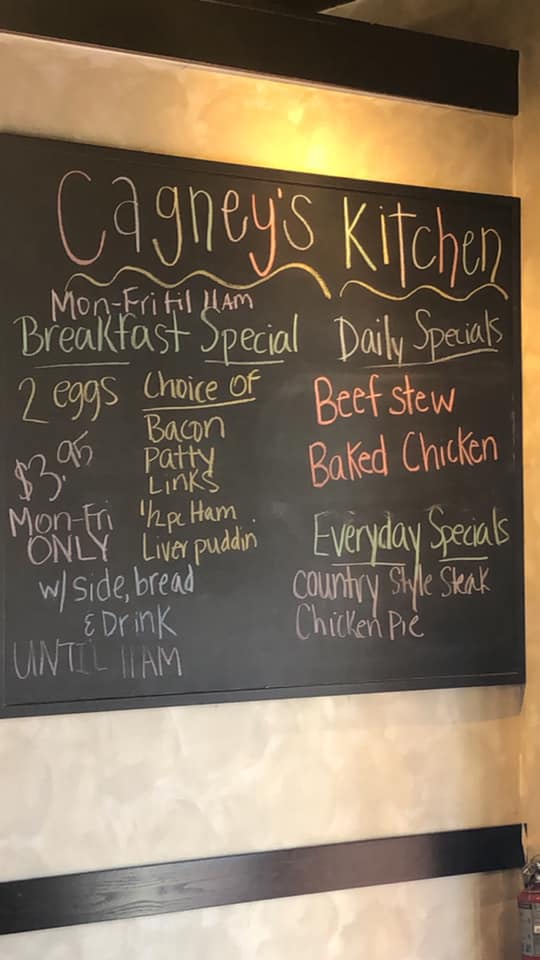 Cagney's Kitchen
Mon-Fri til 11am
Breakfast Special
2 eggs
$3.95
Mon-Fri
ONLY
Choice of
Bacon
Patty
Links
1/2 pc Ham
Liver puddin
w/ side, bread
& Drink
UNTIL 11AM
Daily Specials
Beef stew
Baked Chicken
Everyday Specials
country Style Steak
Chicken Pie